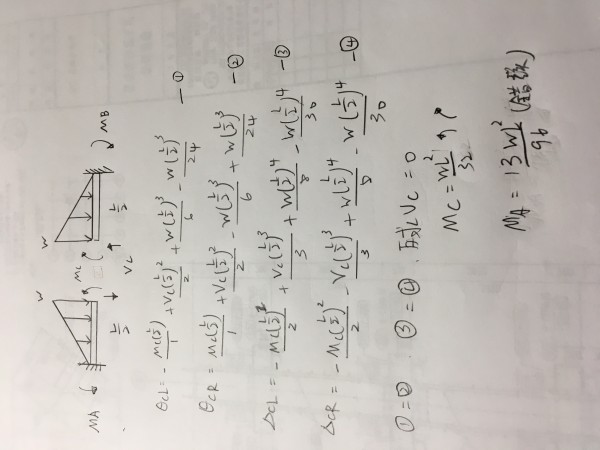 W W
MA MC VC MB
L/2 L/2
θCL = - Mc(L/2)/1 + Vc(L/2)²/2 + W(L/2)³/6 - W(L/2)³/24 —①
θCR = Mc(L/2)/1 + Vc(L/2)²/2 - W(L/2)³/6 + W(L/2)³/24 —②
ΔCL = - Mc(L/2)²/2 + Vc(L/2)³/3 + W(L/2)⁴/8 - W(L/2)⁴/30 —③
ΔCR = - Mc(L/2)²/2 - Vc(L/2)³/3 + W(L/2)⁴/8 - W(L/2)⁴/30 —④
①=② . ③=④ . Vc=0
Mc = WL²/32
MA = 13WL²/96